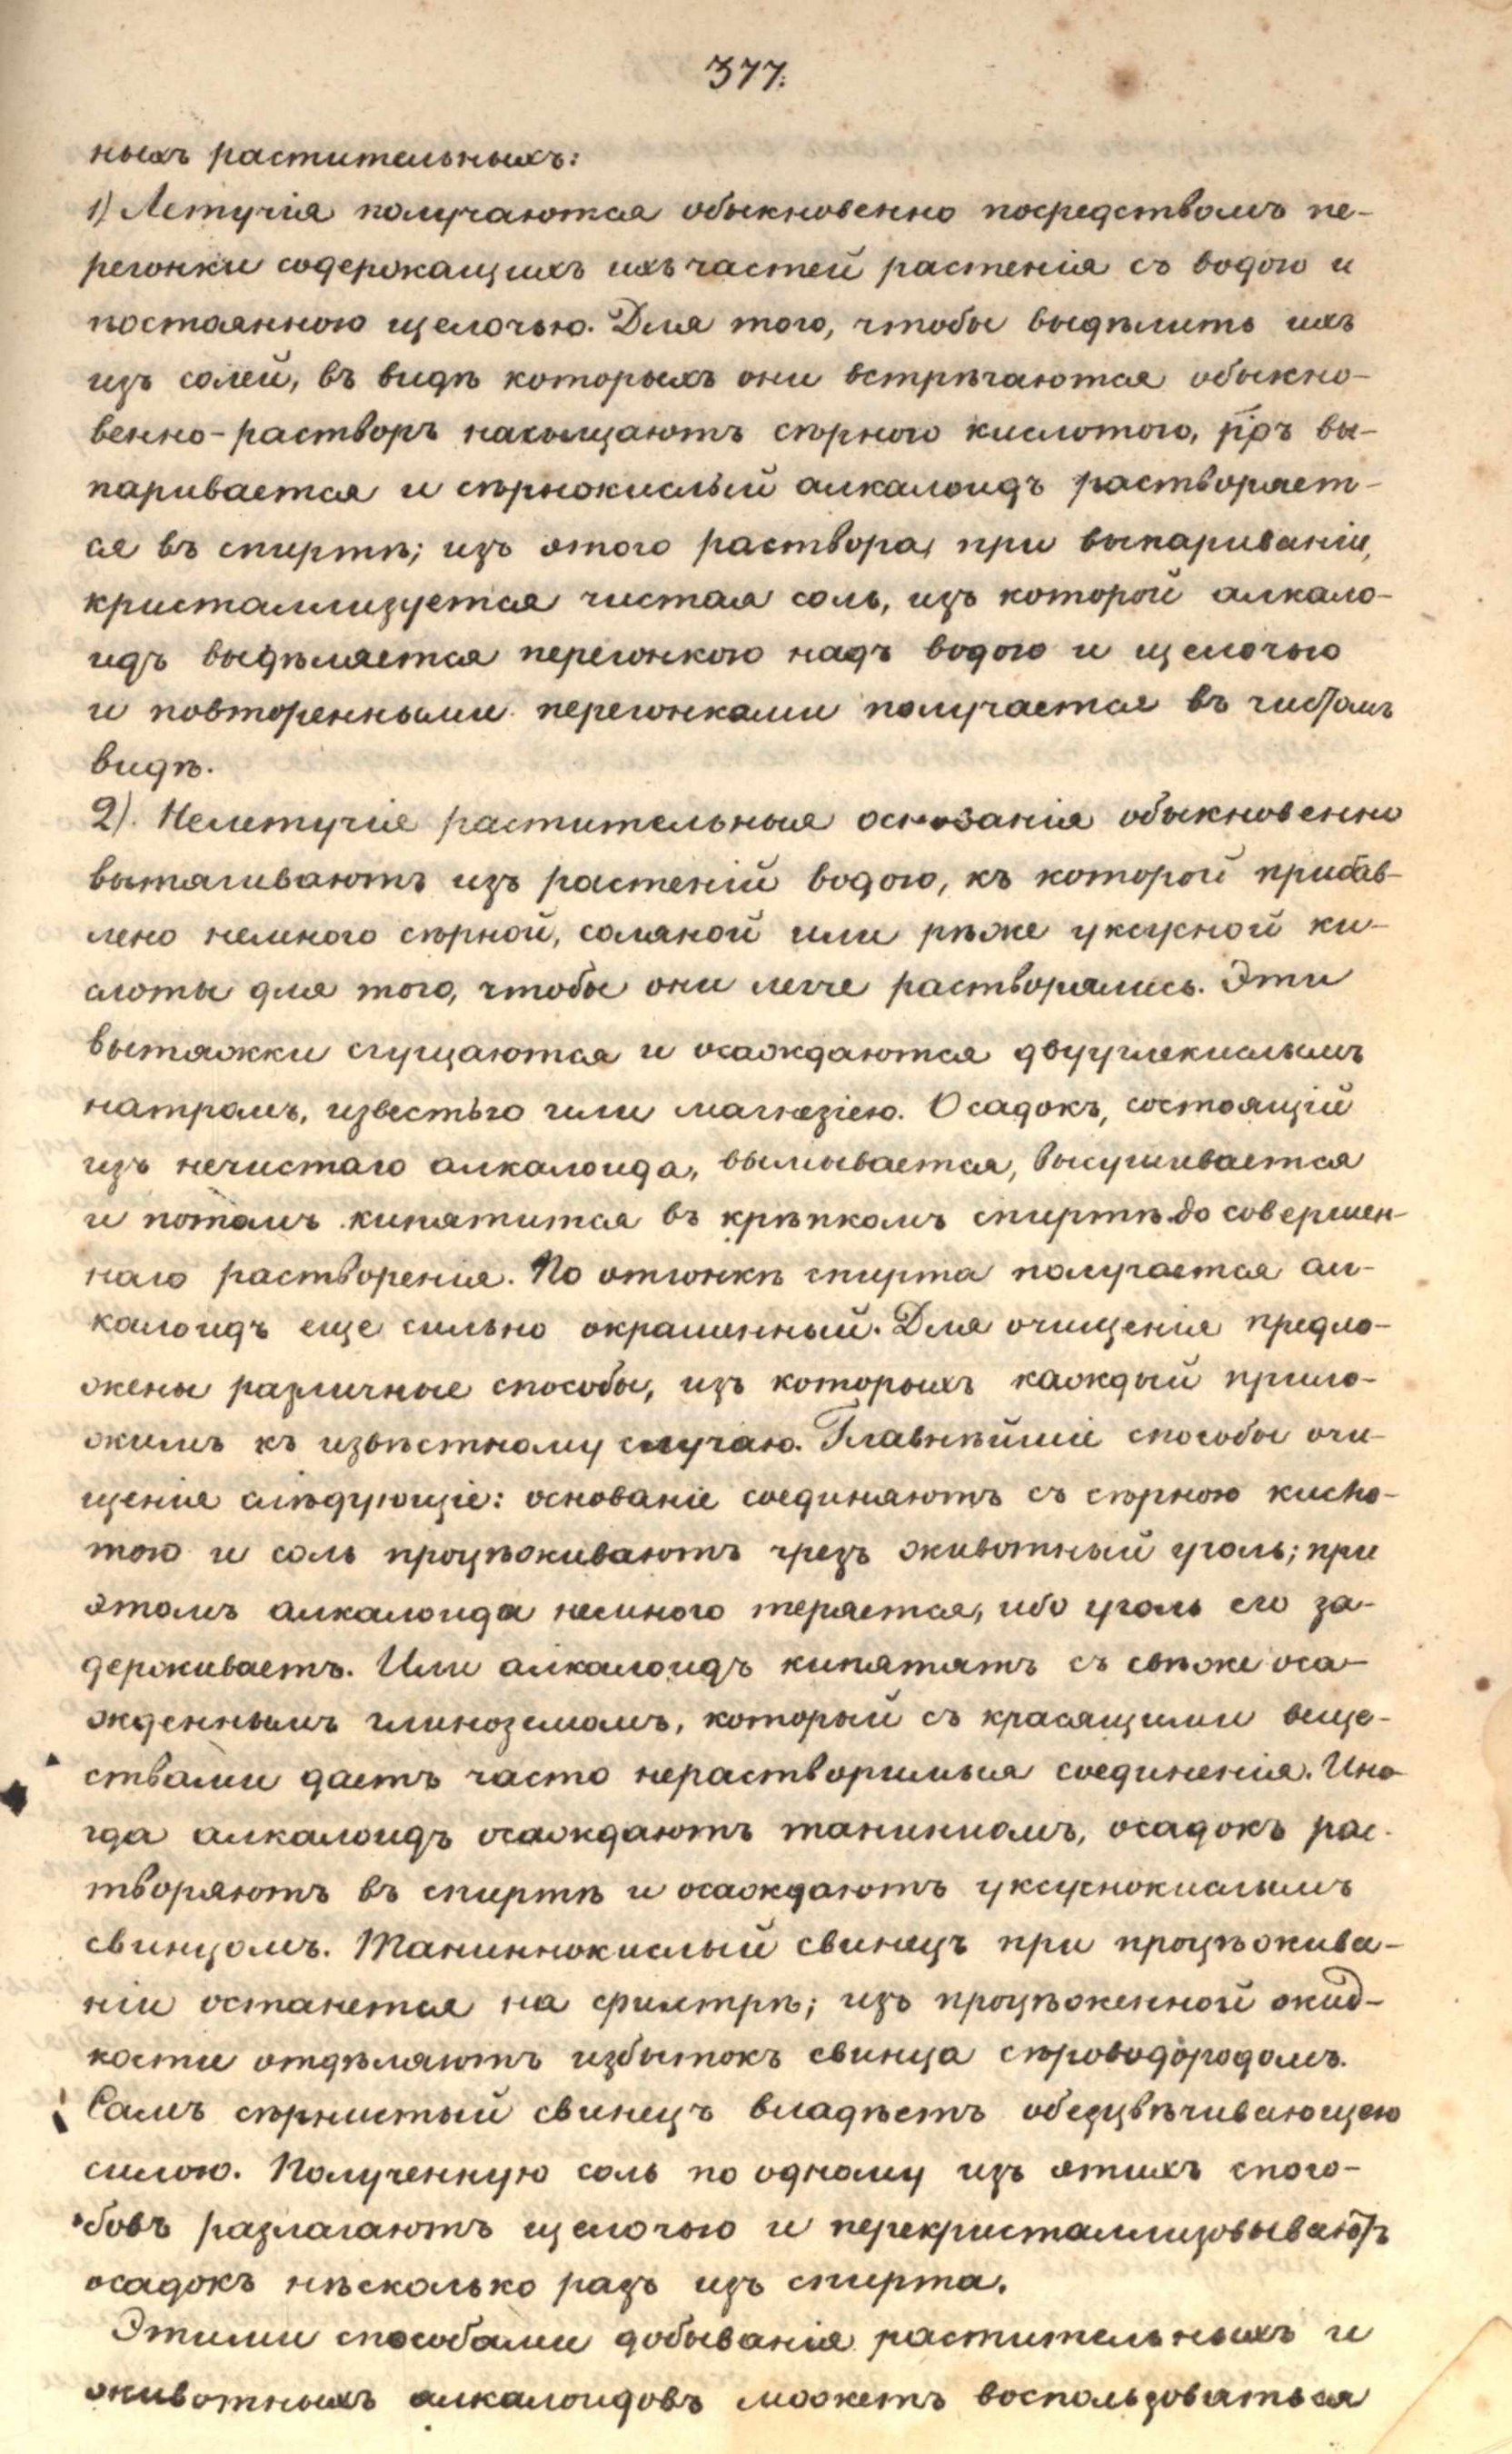 377.
ныхъ растительныхъ:
1) Летучія получаются обыкновенно посредствомъ пе-
регонки содержащихъ ихъ частей растенія съ водою и
постоянною щелочью. Для того, чтобы выдѣлить ихъ
изъ солей, въ видѣ которыхъ они встрѣчаются обыкно-
венно-растворъ насыщаютъ сѣрною кислотою, р̅ръ вы-
паривается и сѣрнокислый алкалоидъ растворяет-
ся въ спиртѣ; изъ этого раствора, при выпариваніи,
кристаллизуется чистая соль, изъ которой алкало-
идъ выдѣляется перегонкою надъ водою и щелочью
и повторенными перегонками получается въ чистомъ
видѣ.
2). Нелетучія растительныя основанія обыкновенно
вытягиваютъ изъ растеній водою, къ которой прибав-
лено немного сѣрной, соляной или рѣже уксусной ки-
слоты для того, чтобы они легче растворялись. Эти
вытяжки сгущаются и осаждаются двууглекислымъ
натромъ, известью или магнезіею. Осадокъ, состоящій
изъ нечистаго алкалоида, вымывается, высушивается
и потомъ кипятится въ крѣпкомъ спиртѣ до совершен-
наго растворенія. По отгонкѣ спирта получается ал-
калоидъ еще сильно окрашенный. Для очищенія предло-
жены различные способы, изъ которыхъ каждый прило-
жимъ къ извѣстному случаю. Главнѣйшіе способы очи-
щенія слѣдующіе: основаніе соединяютъ съ сѣрною кисло-
тою и соль процѣживаютъ чрезъ животный уголь; при
этомъ алкалоида немного теряется, ибо уголь его за-
держиваетъ. Или алкалоидъ кипятятъ съ свѣже оса-
жденнымъ глиноземомъ, который съ красящими веще-
ствами даетъ часто нерастворимыя соединенія. Ино-
гда алкалоидъ осаждаютъ таниниомъ, осадокъ рас-
творяютъ въ спиртѣ и осаждаютъ уксуснокислымъ
свинцомъ. Таниннокислый свинецъ при процѣжива-
ніи останется на фильтрѣ; изъ процѣженной жид-
кости отдѣляютъ избытокъ свинца сѣроводородомъ.
Самъ сѣрнистый свинецъ владѣетъ обезцвѣчивающею
силою. Полученную соль по одному изъ этихъ спосо-
бовъ разлагаютъ щелочью и перекристаллизовываютъ
осадокъ нѣсколько разъ изъ спирта.
Этими способами добыванія растительныхъ и
животныхъ алкалоидовъ можетъ воспользоваться